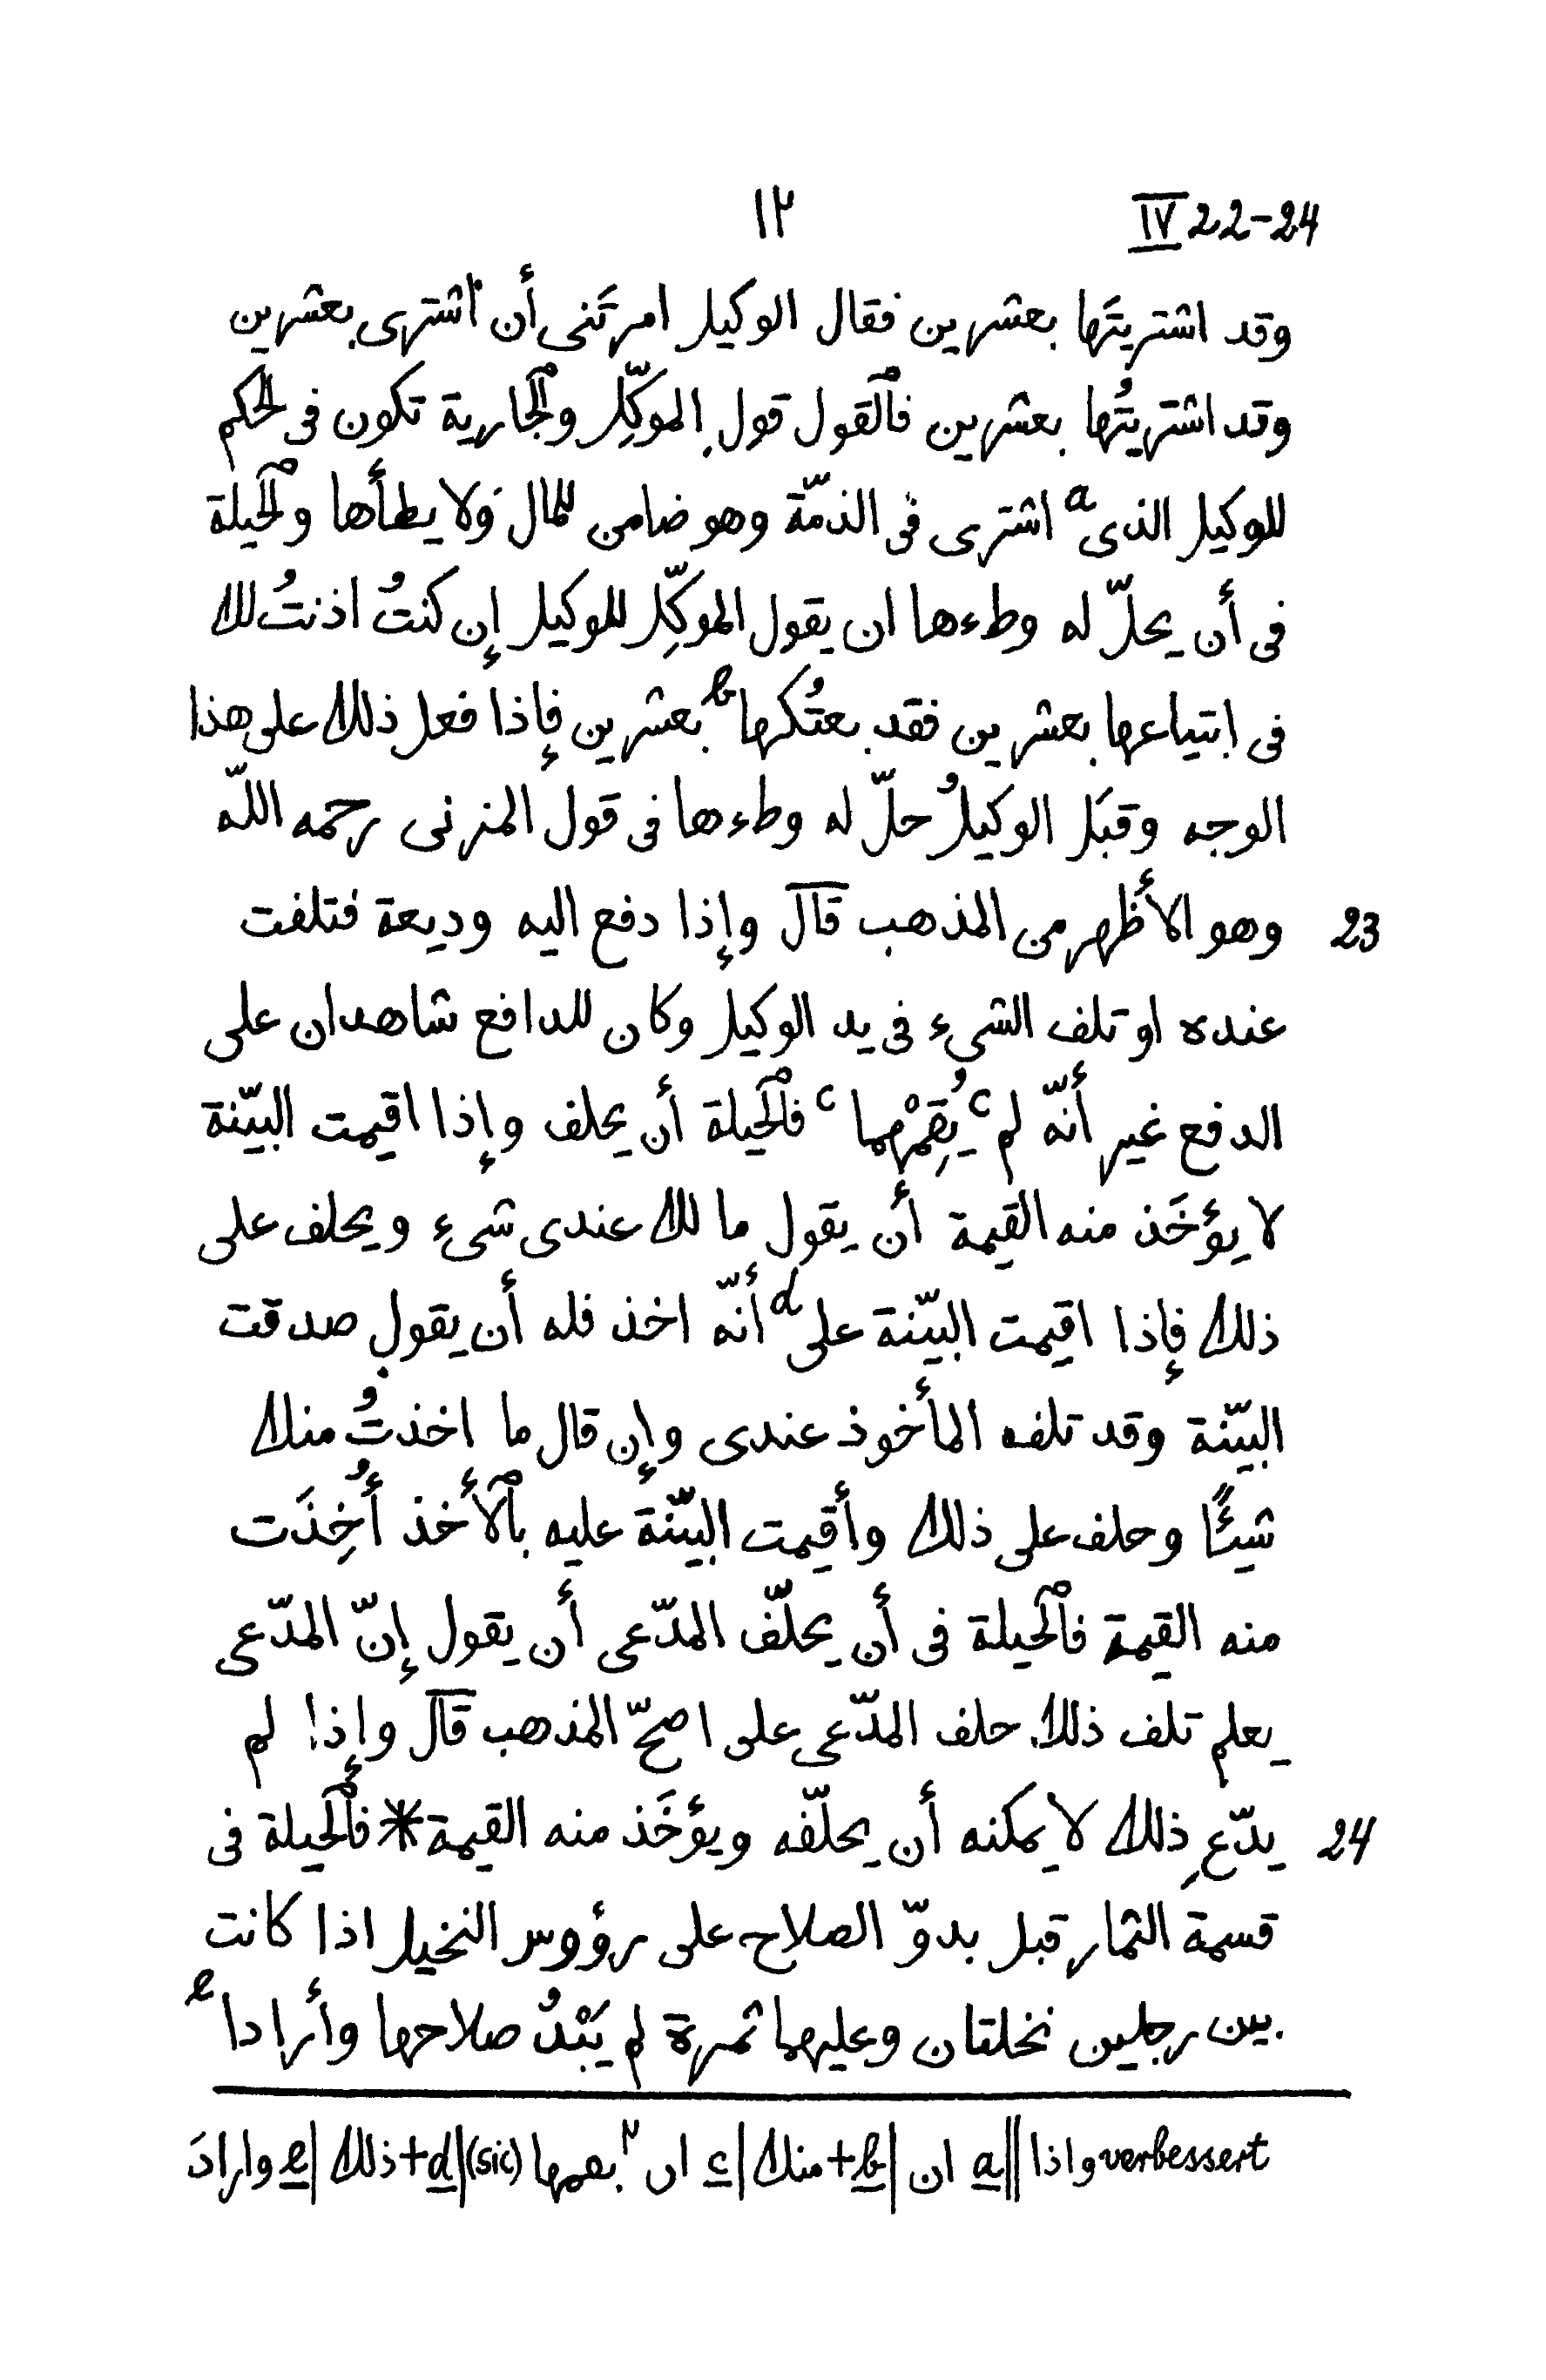 IV 22-24 ١٢
وقد اشتريتَها بعشرين فقال الوكيل امرتَنى أن اشترى بعشرين
وقد اشتريتُها بعشرين فٱلقول قول الموكِّل وٱلجارية تكون فى لحكم
للوكيل الذى a اشترى فى الذمّة وهو ضامن للمال وَلا يطأها وٱلحيلة
فى أن يحلّ له وطءها ان يقول الموكِّل للوكيل إن كنتُ اذنتُ لك
فى ابتياعها بعشرين فقد بعتُكها b بعشرين فإذا فعل ذلك على هذا
الوجه وقبَل الوكيلُ حلّ له وطءها فى قول المزنى رحمه اللّه
23 وهو الأظهر من المذهب قال وإذا دفع اليه وديعة فتلفت
عنده او تلف الشىء فى يد الوكيل وكان للدافع شاهدان على
الدفع غير أنّه لم c يُقِمْهما c فٱلحيلة أن يحلف وإذا اقيمت البيّنة
لا يؤخَذ منه القيمة أن يقول ما لك عندى شىء ويحلف على
ذلك فإذا اقيمت البيّنة على d أنّه اخذ فله أن يقول صدقت
البيّنة وقد تلف المأخوذ عندى وإن قال ما اخذتُ منك
شيئًا وحلف على ذلك وأقيمت البيّنة عليه بٱلأخذ أُخِذَت
منه القيمة فٱلحيلة فى أن يحلّف المدّعى أن يقول إنّ المدّعى
يعلم تلف ذلك حلف المدّعى على اصحّ المذهب قال وإذا لم
24 يدّعِ ذلك لا يمكنه أن يحلّفه ويؤخَذ منه القيمة * فٱلحيلة فى
قسمة الثمار قبل بدوّ الصلاح على رؤوس النخيل اذا كانت
بين رجلين نخلتان وعليهما ثمرة لم يَبْدُ صلاحها وأرادا e
verbessert واذا || a ان | b + منك | c ان بعمها (sic) | d + ذلك | e وارادَ